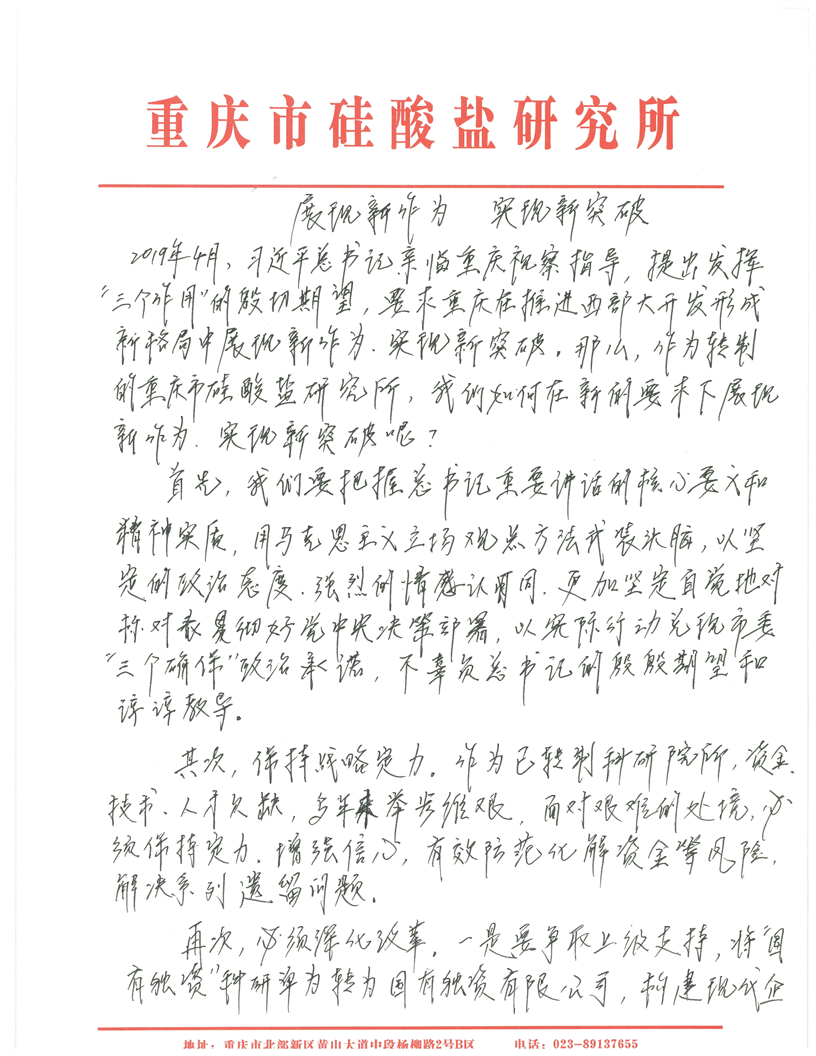 重庆市硅酸盐研究所
展现新作为 实现新突破
2019年4月、习近平总书记亲临重庆视察指导，提出发挥
“三个作用”的殷切期望，要求重庆在推进西部大开发形成
新格局中展现新作为、实现新突破。那么，作为转制
的重庆市硅酸盐研究所，我们如何在新的要求下展现
新作为、实现新突破呢？
首先，我们要把握总书记重要讲话的核心要义和
精神实质，用马克思主义立场观点方法武装头脑，以坚
定的政治态度、强烈的情感认同、更加坚定自觉地对
标对表贯彻好党中央决策部署，以实际行动兑现市委
“三个确保”政治承诺，不辜负总书记的殷殷期望和
谆谆教导。
其次，保持战略定力。作为已转制科研院所，资金、
技术、人才欠缺，多年来举步维艰，面对艰难的处境，必
须保持定力、增强信心，有效防范化解资金等风险，
解决系列遗留问题。
再次，必须深化改革。一是要争取上级支持，将“国
有独资”科研单为转为国有独资有限公司，构建现代企
地址：重庆市北部新区黄山大道中段杨柳路2号B区 电话：023-89137655